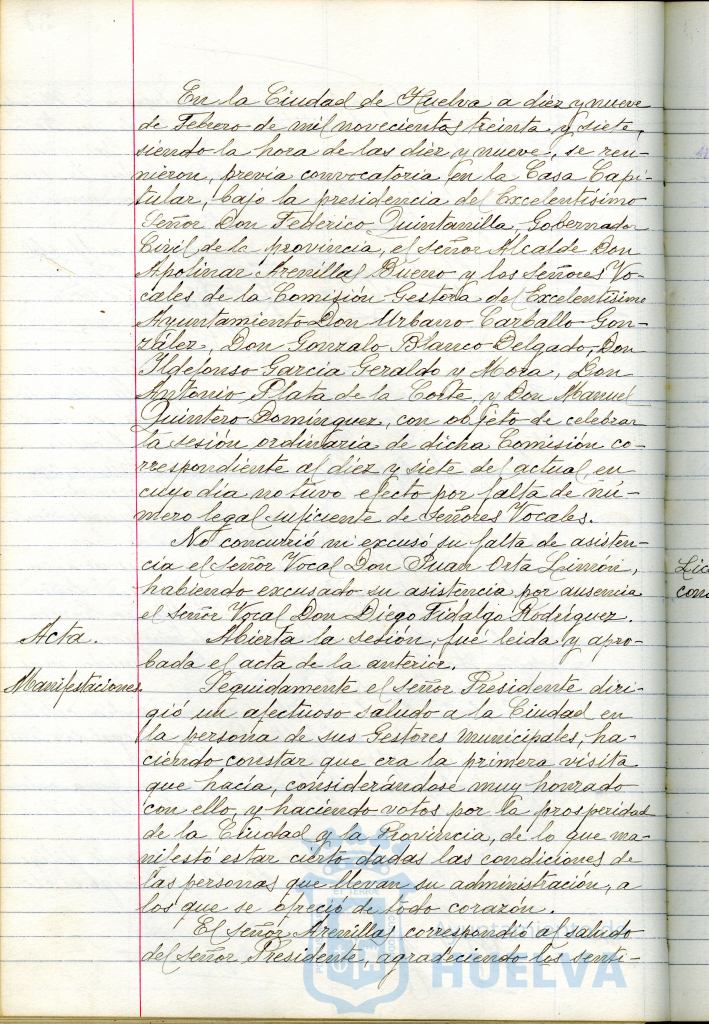 En la Ciudad de Huelva a diez y nueve
de Febrero de mil novecientos treinta y siete,
siendo la hora de las diez y nueve, se reu-
nieron, previa convocatoria en la Casa Capi-
tular, bajo la presidencia del Excelentísimo
Señor Don Federico Quintanilla, Gobernador
Civil de la provincia, el señor Alcalde Don
Apolinar Arenillas Bueno y los Señores Vo-
cales de la Comisión Gestora del Excelentísimo
Ayuntamiento Don Urbano Carballo Gon-
zález, Don Gonzalo Blanco Delgado, Don
Ildefonso García Geraldo y Mora, Don
Antonio Plata de la Corte, y Don Manuel
Quintero Domínguez, con objeto de celebrar
la sesión ordinaria de dicha Comisión co-
rrespondiente al diez y siete del actual en
cuyo día no tuvo efecto por falta de nú-
mero legal suficiente de Señores Vocales.
No concurrió ni excusó su falta de asisten-
cia el Señor Vocal Don Juan Orta Limón,
habiendo excusado su asistencia por ausencia
el señor Vocal Don Diego Fidalgo Rodríguez.
Acta. Abierta la sesión, fué leida y apro-
bada el acta de la anterior.
Manifestaciones. Seguidamente el señor Presidente diri-
gió un afectuoso saludo a la Ciudad en
la persona de sus Gestores municipales, ha-
ciendo constar que era la primera visita
que hacía, considerándose muy honrado
con ello, y haciendo votos por la prosperidad
de la Ciudad y la Provincia, de lo que ma-
nifestó estar cierto dadas las condiciones de
las personas que llevan su administración, a
los que se ofreció de todo corazón.
El Señor Arenillas correspondió al saludo
del señor Presidente, agradeciendo los senti-
HUELVA